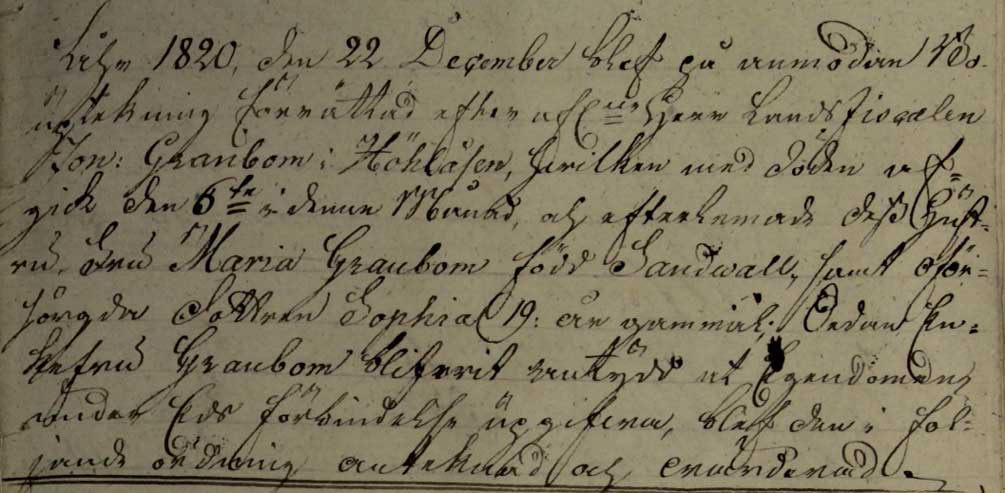 Åhr 1820, den 22 December blef på anmodan Bo-
uptekning förrättad efter afl:ne Herr Landsfiscalen
Jon: Graubom i Höhlåsen, hvilken med döden af-
gick den 6te i denne Månad, och efterlemnade dess Hust-
ru, Fru Maria Graubom född Sandwall, samt oför-
sörgda Dottren Sophia 19: år gammal; Sedan En-
kefru Graubom blifvit antydd at Egendomen
under Eds förbindelse upgifva, blef den i föl-
jande ordning anteknad och värderad.